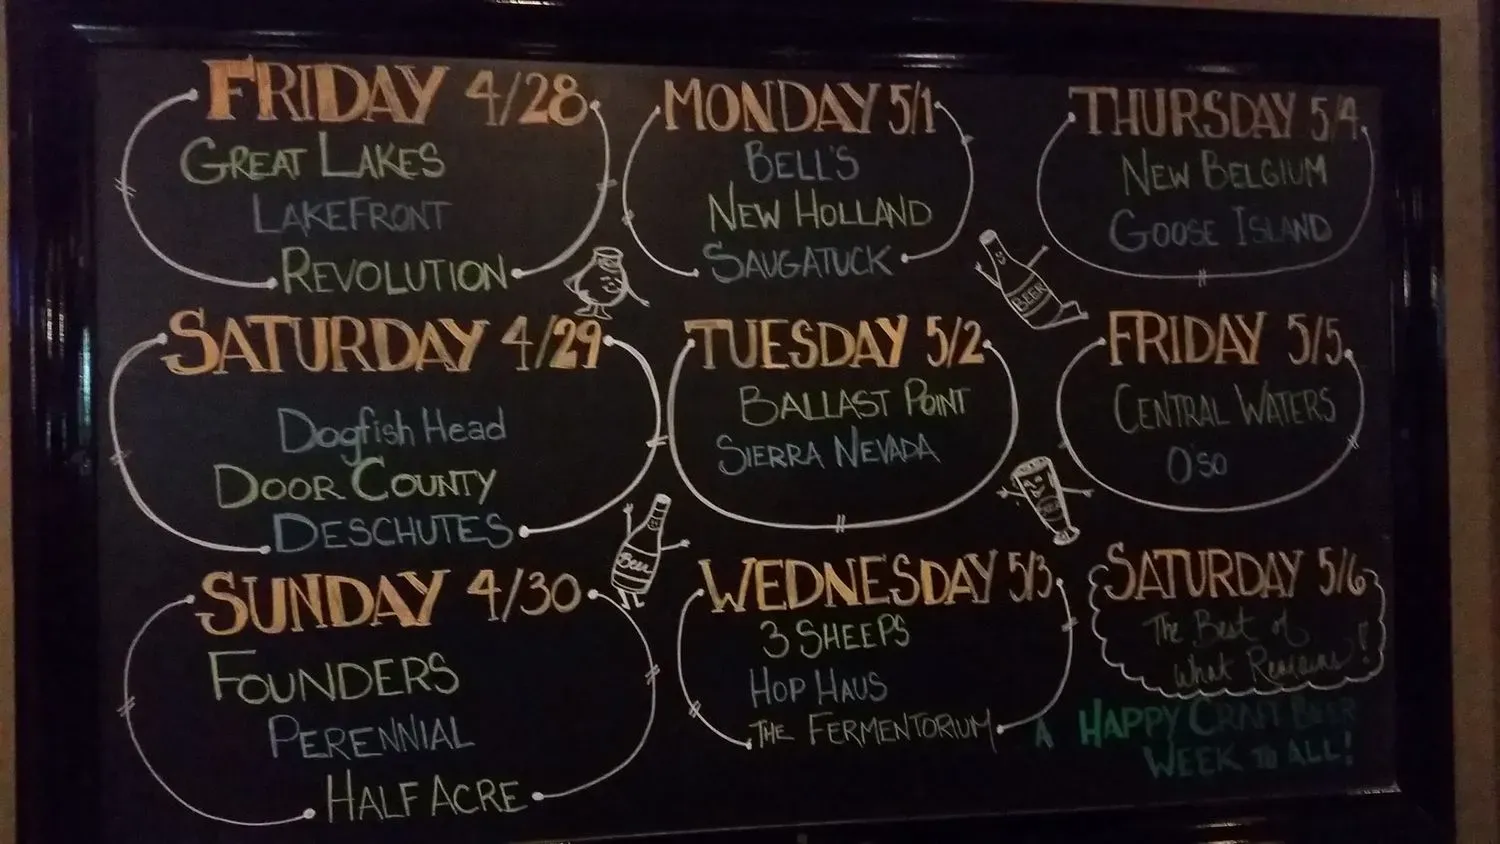 FRIDAY 4/28
GREAT LAKES
LAKEFRONT
REVOLUTION
SATURDAY 4/29
Dogfish Head
DOOR COUNTY
DESCHUTES
SUNDAY 4/30
FOUNDERS
PERENNIAL
HALF ACRE
MONDAY 5/1
BELL'S
NEW HOLLAND
SAUGATUCK
TUESDAY 5/2
BALLAST POINT
SIERRA NEVADA
Beer
WEDNESDAY 5/3
3 SHEEPS
HOP HAUS
THE FERMENTORIUM
THURSDAY 5/4
NEW BELGIUM
GOOSE ISLAND
BEER
FRIDAY 5/5
CENTRAL WATERS
O'SO
BEER
SATURDAY 5/6
The Best of
What Remains!!
A HAPPY CRAFT BEER
WEEK TO ALL!